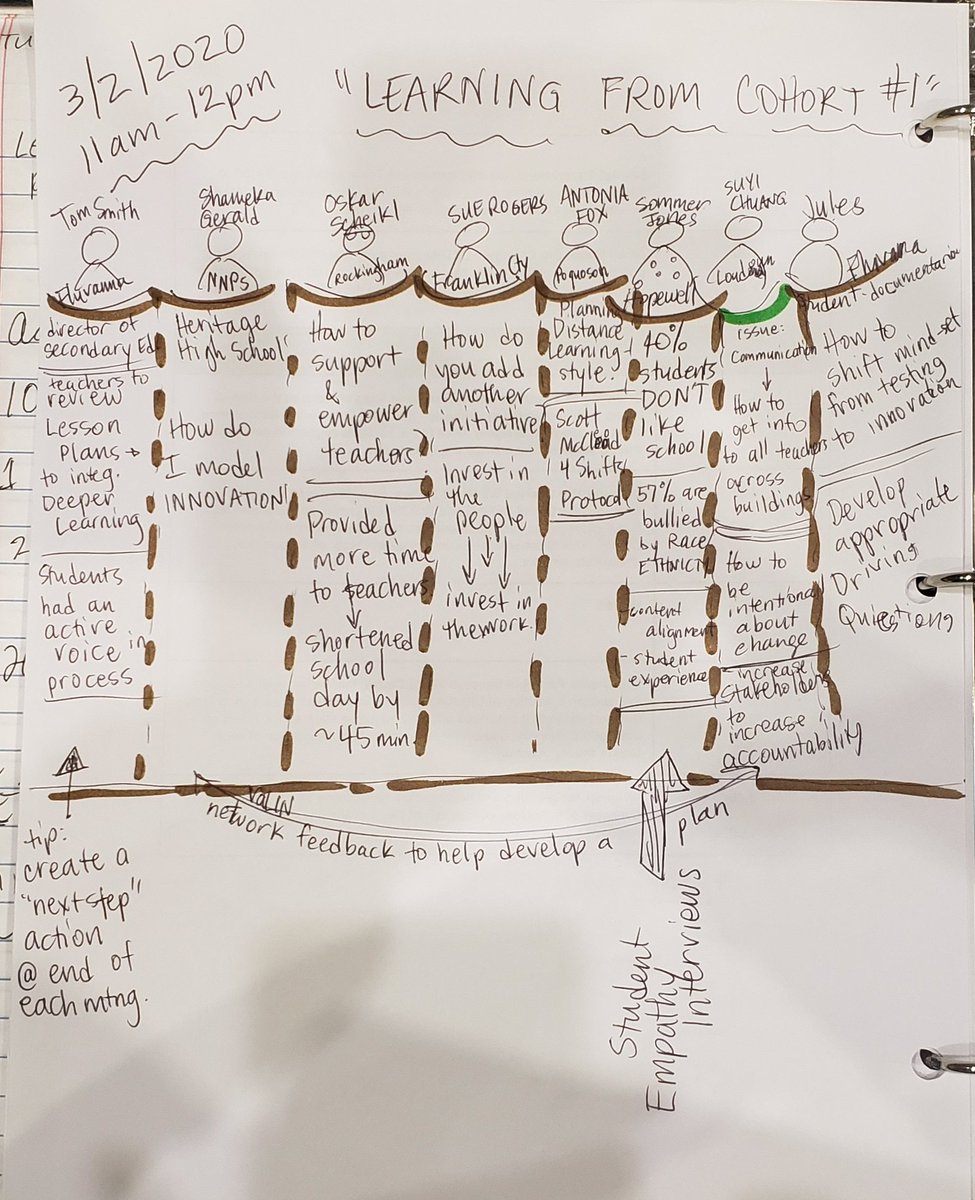 3/2/2020
11am-12pm
"LEARNING FROM COHORT #1"
Tom Smith
Fluvanna
director of
secondary Ed
teachers to
review
Lesson
Plans →
to integ.
Deeper
Learning
Students
had an
active
voice in
process
Shameka
Gerald
NNPS
Heritage
High School
How do
I model
INNOVATION?
Oskar
Scheikl
Rockingham
How to
support
&
empower
teachers?
Provided
more time
to teachers
shortened
school
day by
~45 min.
SUE ROGERS
Franklin Cty
How do
you add
another
initiative
Invest in
the
people
invest in
the work.
ANTONIA
FOX
Poquoson
Planning
Distance
Learning-
style?
Scott
McLeod
4 Shifts
Protocol
Sommer
Jones
Hopewell
40%
students
DON'T
like
school
57% are
bullied
by Race
ETHNICITY
-content
alignment
-student
experience
SUYI
CHUANG
Loudoun
issue:
Communication
How to
get info
to all teachers
across
buildings
How to
be
intentional
about
change
-increase
stakeholders
to
increase
accountability
Jules
Fluvanna
student-documentarian
How to
shift mind-set
from testing
to innovation
Develop
appropriate
Driving
Questions
tip:
create a
"next step"
action
@ end of
each mtng.
VaLIN
network feedback to help develop a plan
Student
Empathy
Interviews